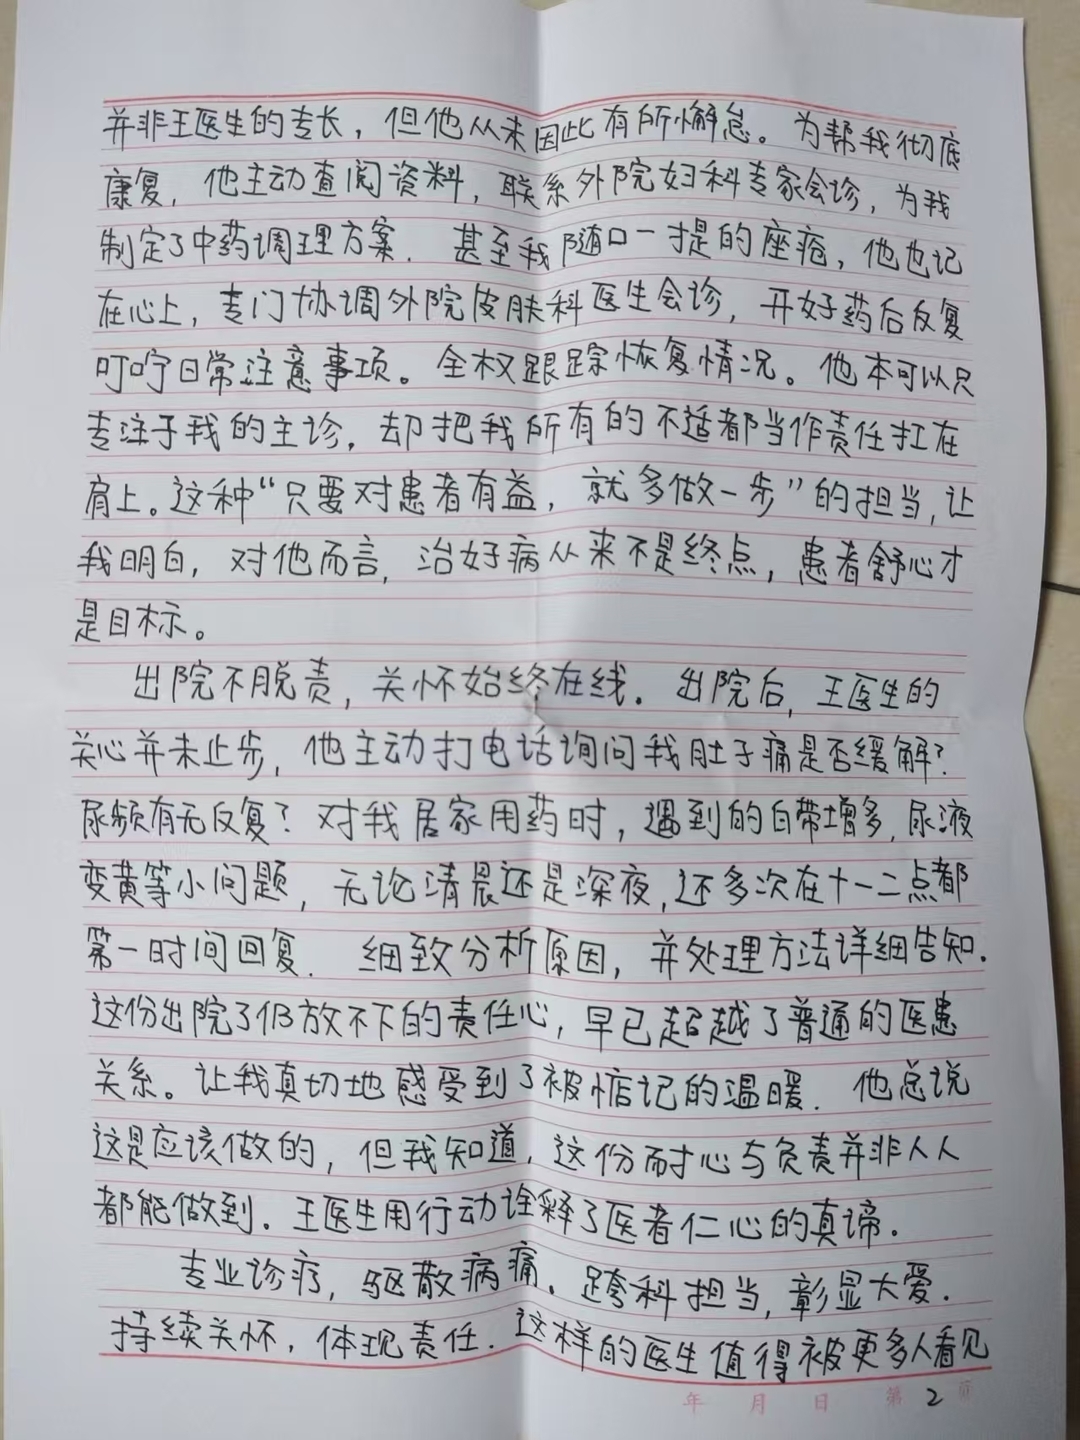 并非王医生的专长，但他从未因此有所懈怠。为帮我彻底
康复，他主动查阅资料，联系外院妇科专家会诊，为我
制定了中药调理方案．甚至我随口一提的座疮，他也记
在心上，专门协调外院皮肤科医生会诊，开好药后反复
叮咛日常注意事项。全权跟踪恢复情况。他本可以只
专注于我的主诊，却把我所有的不适都当作责任扛在
肩上。这种“只要对患者有益，就多做一步”的担当，让
我明白，对他而言，治好病从来不是终点，患者舒心才
是目标。
出院不脱责，关怀始终在线．出院后，王医生的
关心并未止步，他主动打电话询问我肚子痛是否缓解？
尿频有无反复？对我居家用药时，遇到的白带增多，尿液
变黄等小问题，无论清晨还是深夜，还多次在十一二点都
第一时间回复．细致分析原因，并处理方法详细告知．
这份出院了仍放不下的责任心，早已超越了普通的医患
关系。让我真切地感受到了被惦记的温暖．他总说
这是应该做的，但我知道，这份耐心与负责并非人人
都能做到．王医生用行动诠释了医者仁心的真谛．
专业诊疗，驱散病痛．跨科担当，彰显大爱．
持续关怀，体现责任．这样的医生值得被更多人看见
年 月 日 第 2 页